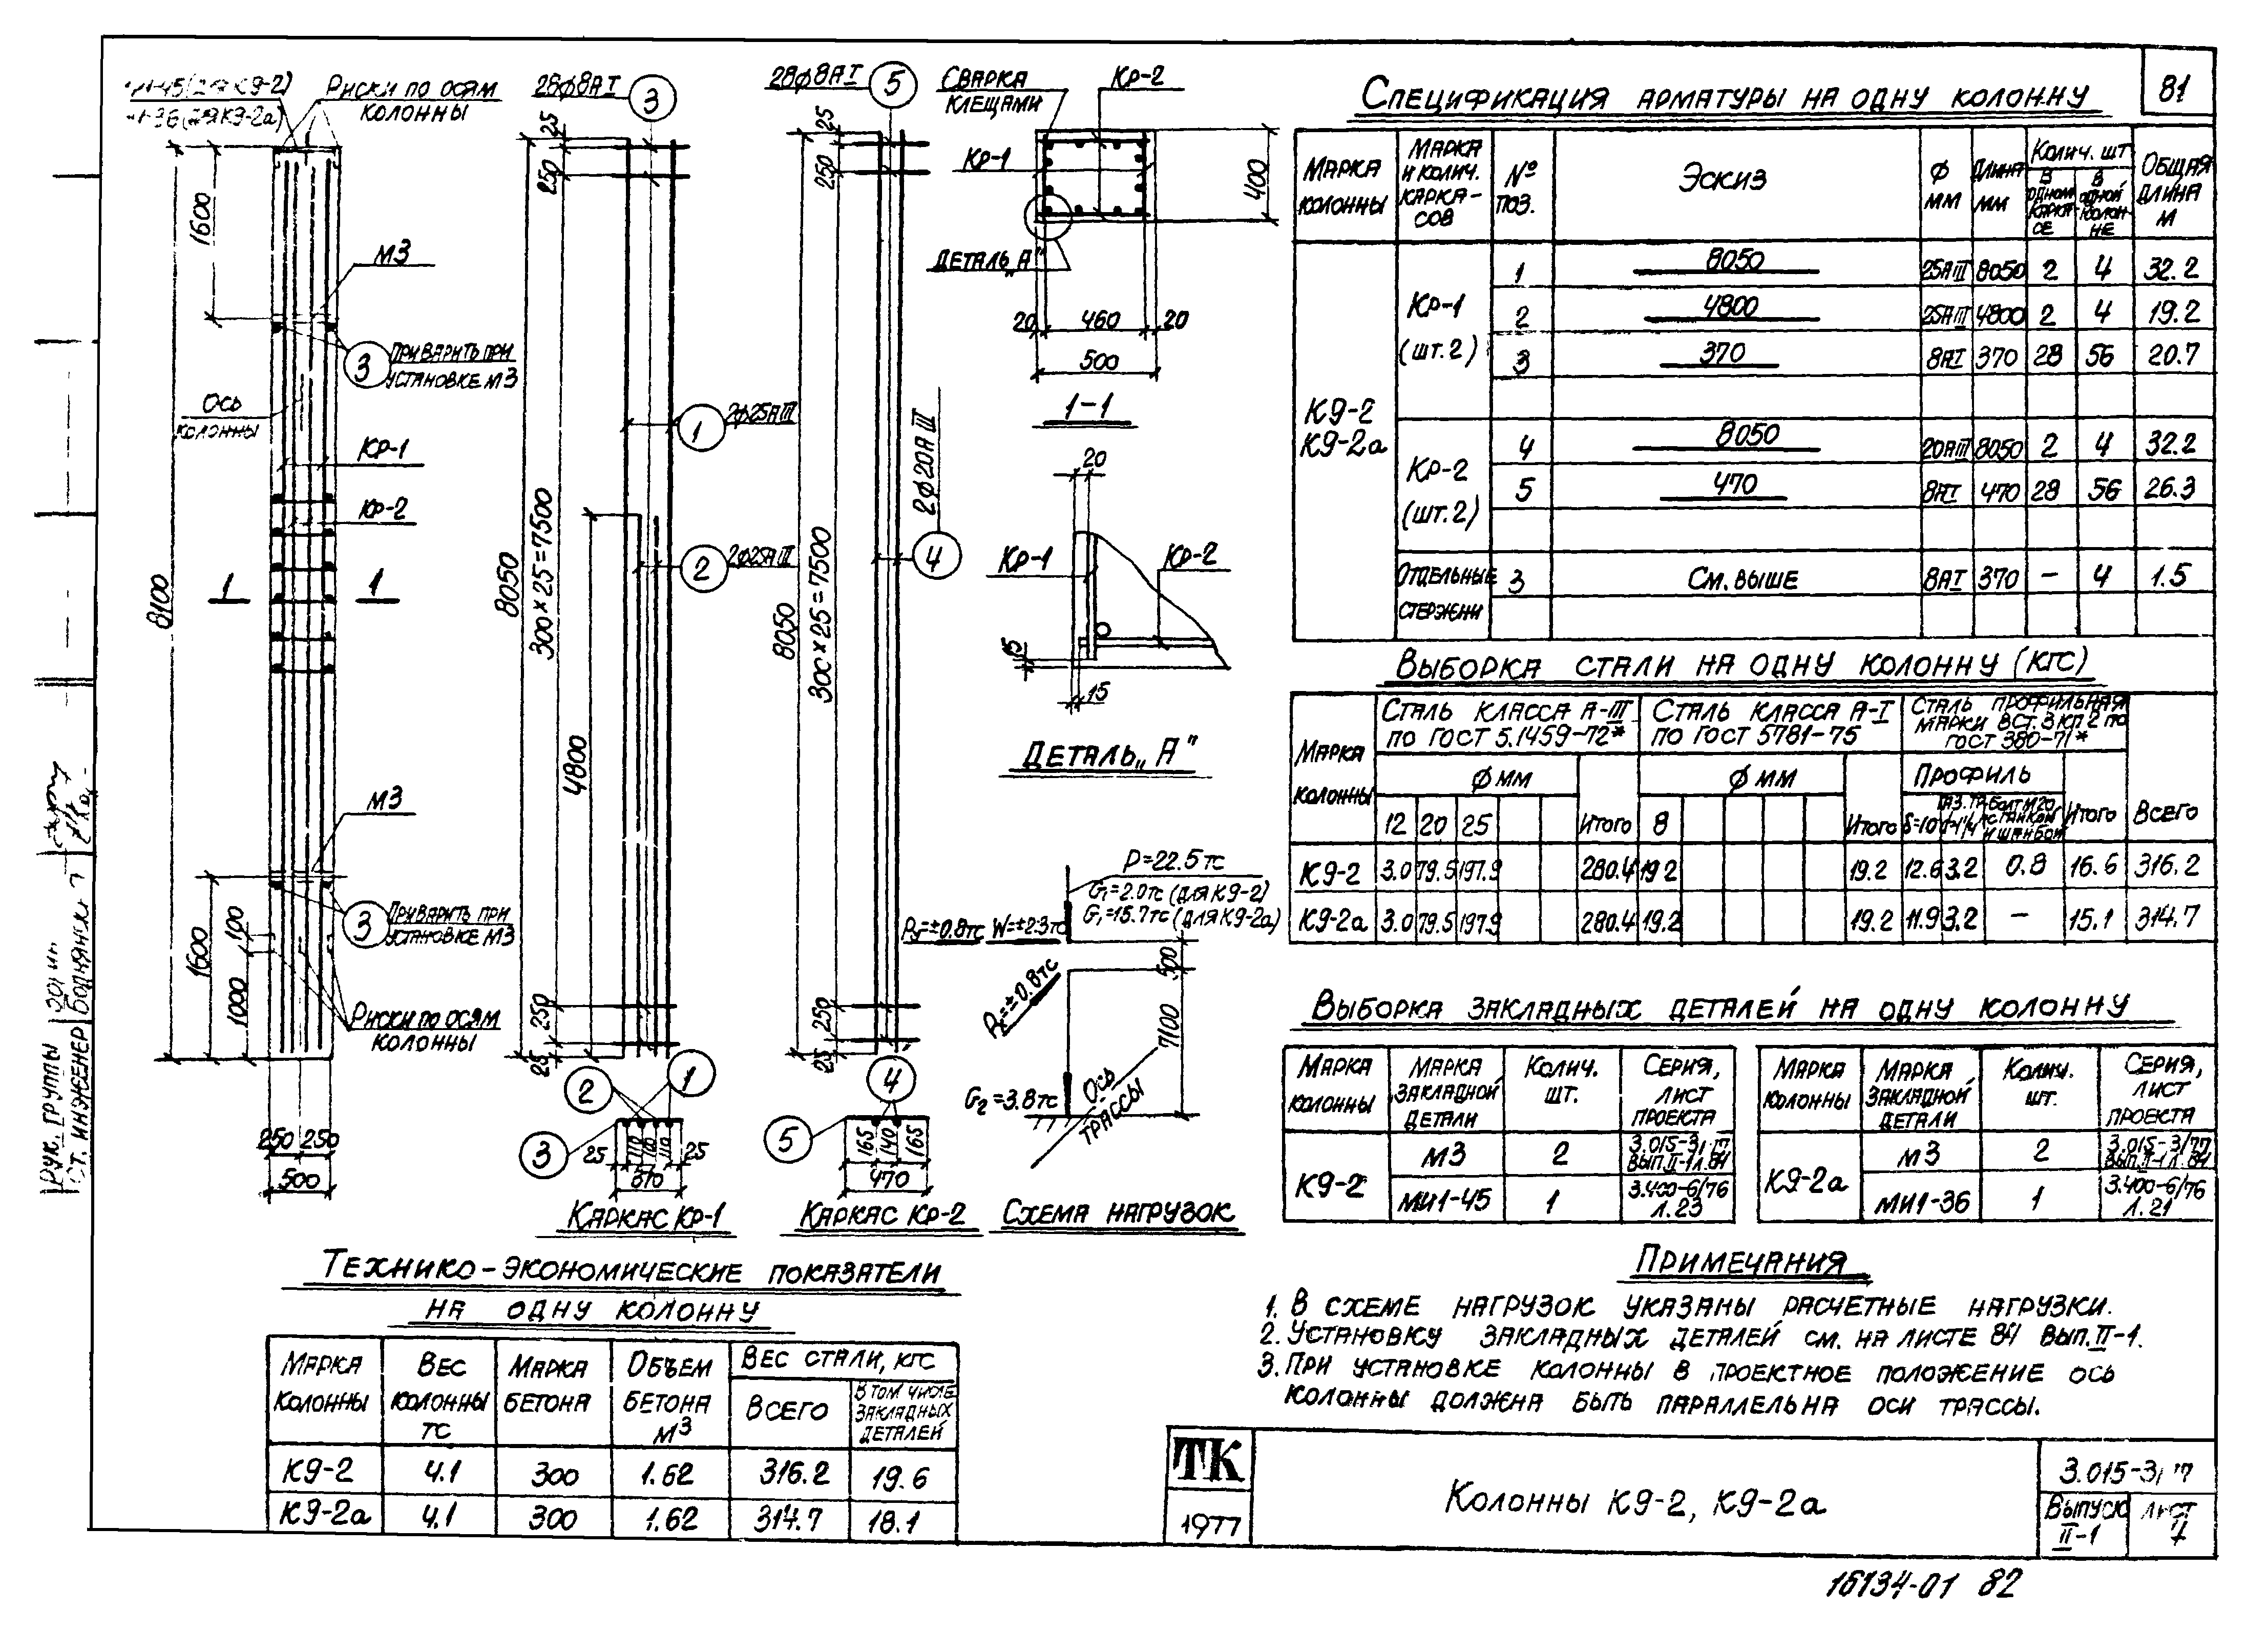 81
Риски по осям
колонны
1600
М3
3
Приварить при
установке М3
Ось
колонны
Кр-1
Кр-2
1 1
8100
М3
3
Приварить при
установке М3
1600
100
1000
Риски по осям
колонны
250 250
500
28ф8АI 3
25
250
8050
300×25=7500
4800
1 2ф25АIII
2 2ф25АIII
250
25
2 1
3
25 110 110 25
Каркас Кр-1
28ф8АI 5
25
250
8050
300×25=7500
2ф20АIII
4
250
25
4
5
165 140 165
470
Каркас Кр-2
Сварка
клещами
Кр-2
Кр-1
400
Деталь „А"
20 460 20
500
1-1
20
Кр-1
Кр-2
15
15
Деталь „А"
P=22.5тс
G1=2.0тс (для К9-2)
G1=15.7тс (для К9-2а)
Py=±0.8тс W=±2.3тс
Px=±0.8тс
500
7100
G2=3.8тс
Ось
трассы
Схема нагрузок
Спецификация арматуры на одну колонну
Марка колонны
Марка и колич. каркасов
№ поз.
Эскиз
ф мм
Длина мм
Колич. шт
В одном каркасе
В одной колонне
Общая длина м
К9-2
К9-2а
Кр-1
(шт.2)
1 8050 25АIII 8050 2 4 32.2
2 4800 25АIII 4800 2 4 19.2
3 370 8АI 370 28 56 20.7
Кр-2
(шт.2)
4 8050 20АIII 8050 2 4 32.2
5 470 8АI 470 28 56 26.3
Отдельные
стержни
3 См. выше 8АI 370 – 4 1.5
Выборка стали на одну колонну (кгс)
Марка колонны
Сталь класса А-III
по ГОСТ 5.1459-72*
Сталь класса А-I
по ГОСТ 5781-75
Сталь профильная
марки ВСт.3 кп 2 по
ГОСТ 380-71*
ф мм ф мм Профиль
12 20 25 Итого 8 Итого δ=10 Итого Всего
К9-2 3.0 79.5 197.9 280.4 19.2 19.2 12.6 3.2 0.8 16.6 316.2
К9-2а 3.0 79.5 197.9 280.4 19.2 19.2 11.9 3.2 – 15.1 314.7
Выборка закладных деталей на одну колонну
Марка колонны
Марка закладной детали
Колич. шт.
Серия, лист проекта
К9-2
М3 2 вып.II-1 л.84
МИ1-45 1 3.400-6/76 л.23
Марка колонны
Марка закладной детали
Колич. шт.
Серия, лист проекта
К9-2а
М3 2 3.015-3/77 вып.II-1 л.84
МИ1-36 1 3.400-6/76 л.21
Технико-экономические показатели
на одну колонну
Марка колонны
Вес колонны тс
Марка бетона
Объем бетона м3
Вес стали, кгс
Всего
В том числе закладных деталей
К9-2 4.1 300 1.62 316.2 19.6
К9-2а 4.1 300 1.62 314.7 18.1
Примечания
1. В схеме нагрузок указаны расчетные нагрузки.
2. Установку закладных деталей см. на листе 84 вып.II-1.
3. При установке колонны в проектное положение ось
колонны должна быть параллельна оси трассы.
ТК
1977
Колонны К9-2, К9-2а
Выпуск
II-1
Лист
Рук. группы
Ст. инженер
16134-01 82